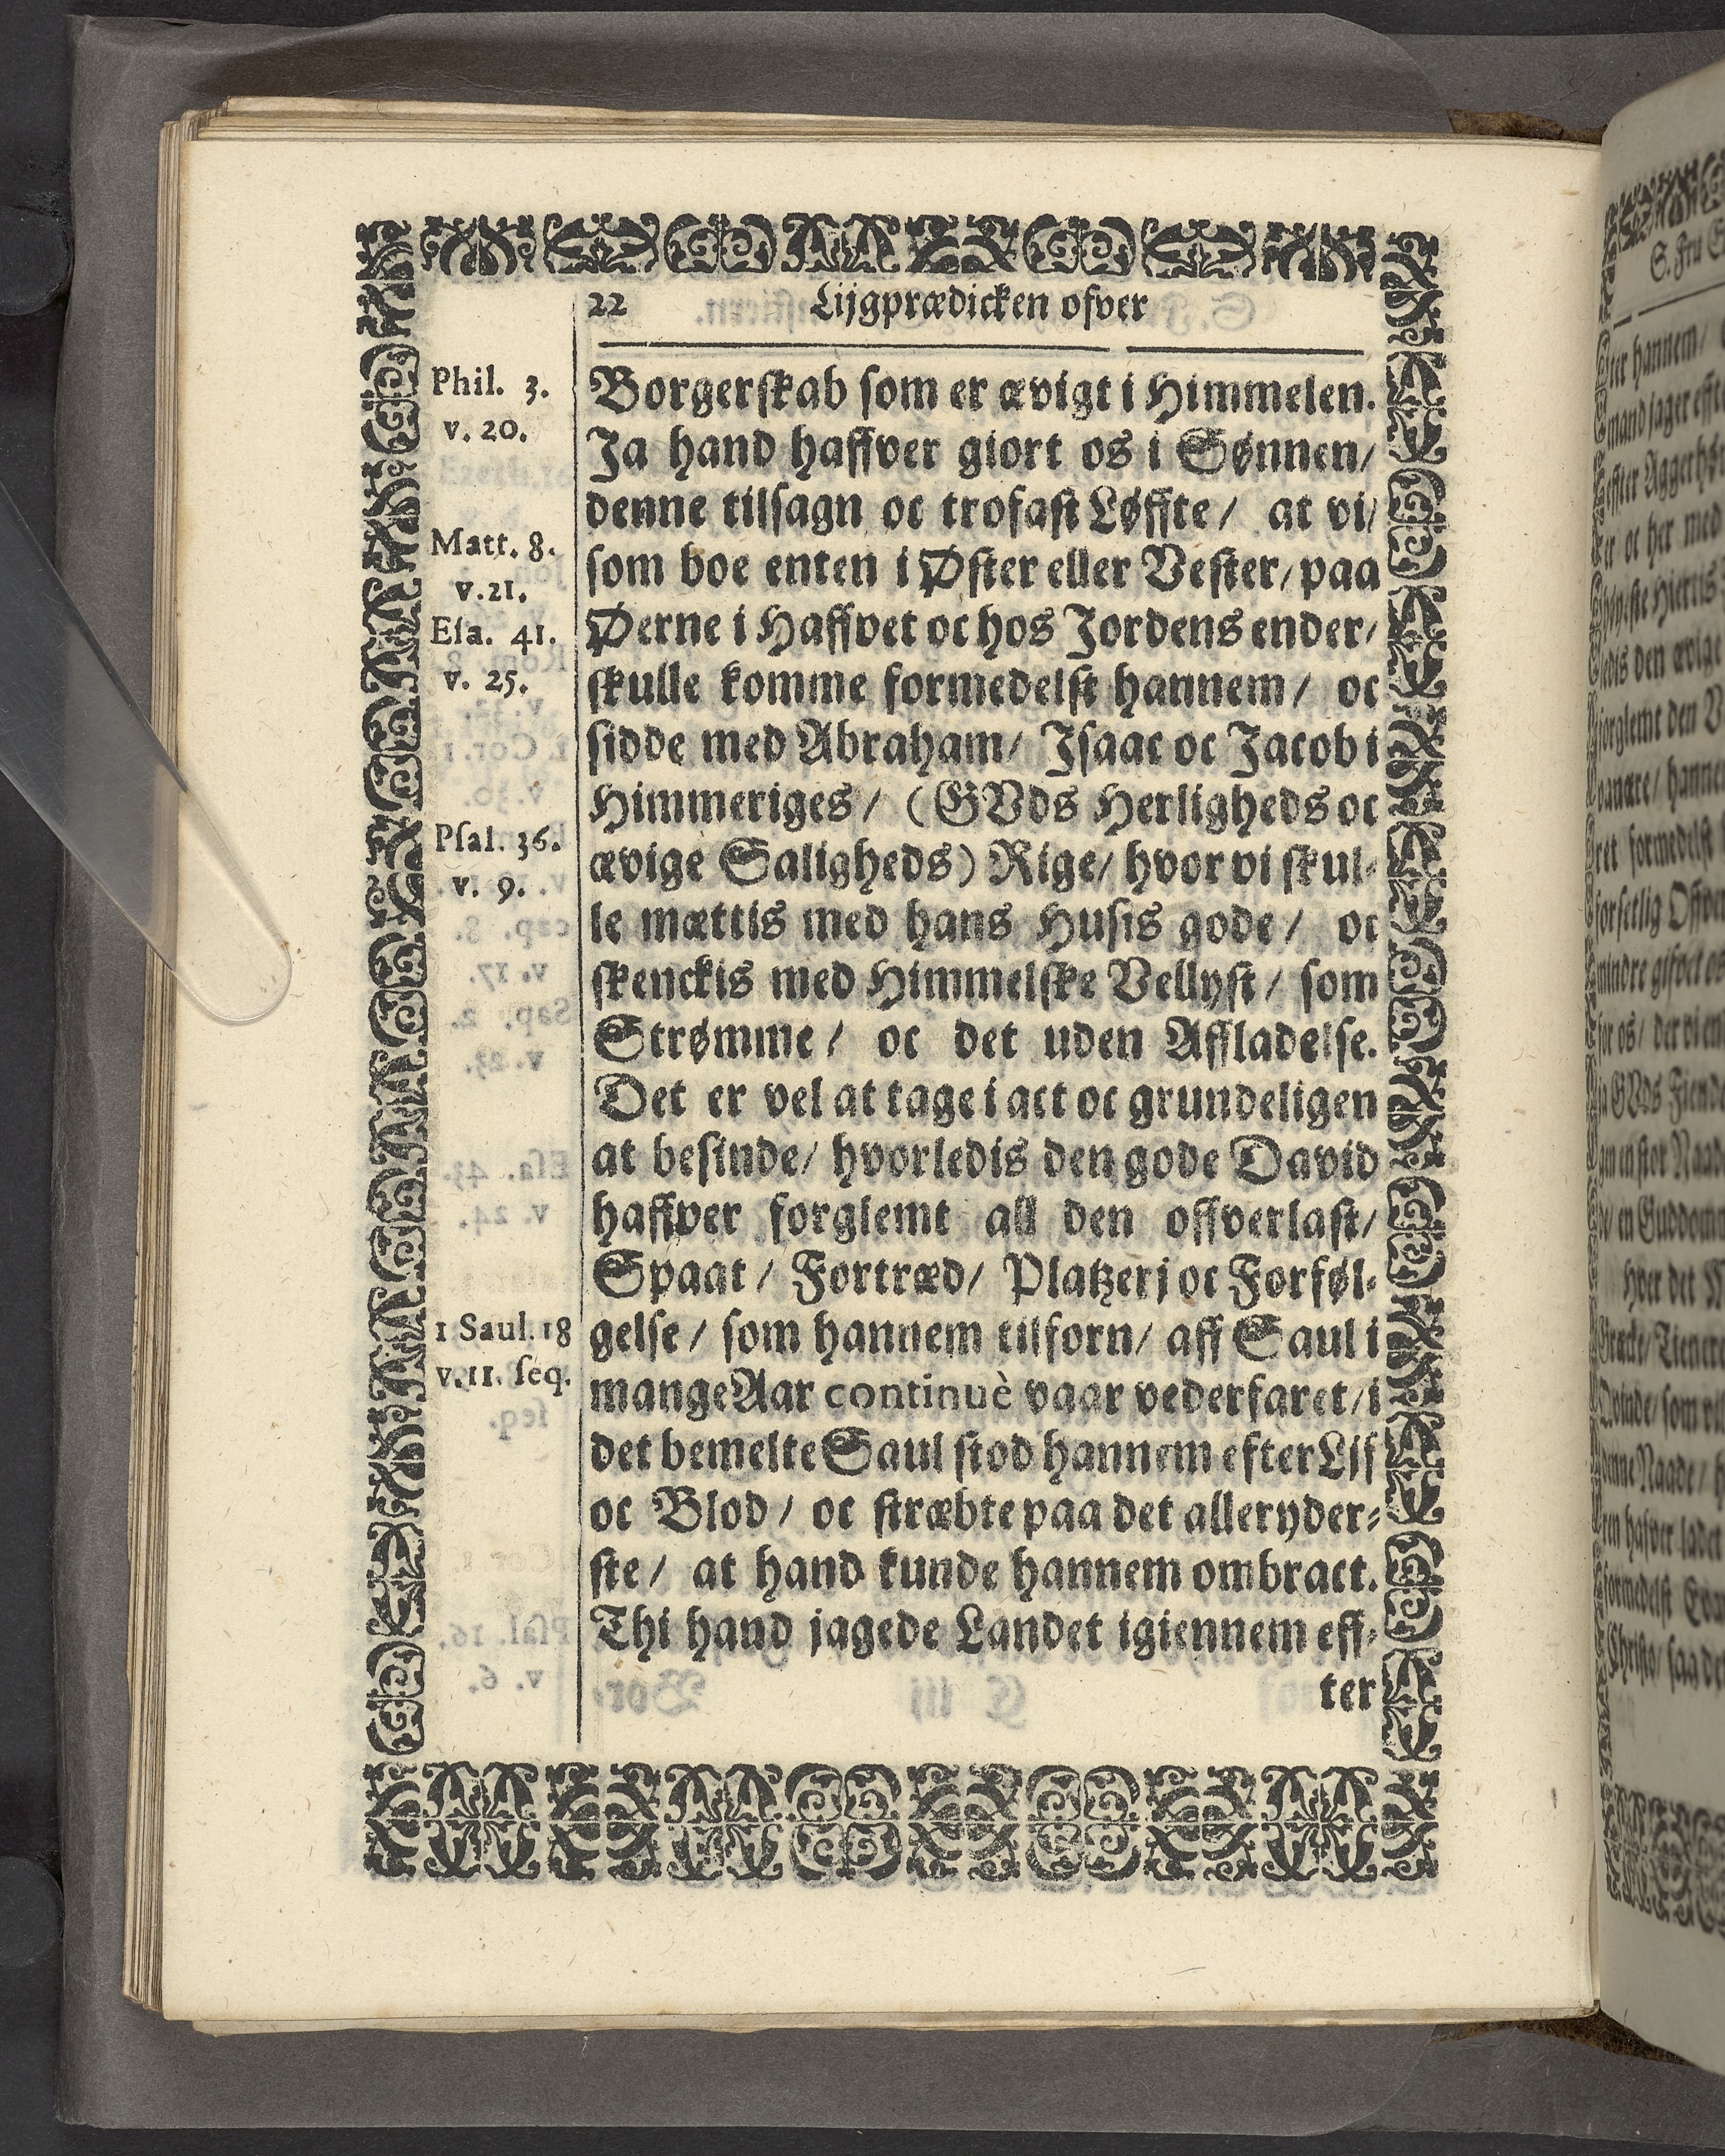 22 Lijgprædicken ofver
Phil. 3.
v. 20.
Matt. 8.
v. 21.
Eſa. 41.
v. 25.
Pſal. 36.
v. 9.
1 Saul. 18
v. 11. ſeq.
Borgerſkab ſom er ævigt i Himmelen.
Ja hand haffver giort os i Sønnen/
denne tilſagn oc trofaſt Løffte/ at vi/
ſom boe enten i Øſter eller Veſter/ paa
Øerne i Haffvet oc hos Jordens ender/
ſkulle komme formedelſt hannem/ oc
ſidde med Abraham/ Jſaac oc Jacob i
Himmeriges/ (GVds Herligheds oc
ævige Saligheds) Rige/ hvor vi ſkul-
le mættis med hans Huſis gode/ oc
ſkenckis med Himmelſke Vellyſt/ ſom
Strømme/ oc det uden Affladelſe.
Det er vel at tage i act oc grundeligen
at beſinde/ hvorledis den gode David
haffver forglemt all den offverlaſt/
Spaat/ Fortræd/ Platzerj oc Forføl-
gelſe/ ſom hannem tilforn/ aff Saul i
mange Aar continuè vaar vederfaret/ i
det bemelte Saul ſtod hannem efter Lif
oc Blod/ oc ſtræbte paa det alleryder-
ſte/ at hand kunde hannem ombract.
Thi hand jagede Landet igiennem eff-
ter